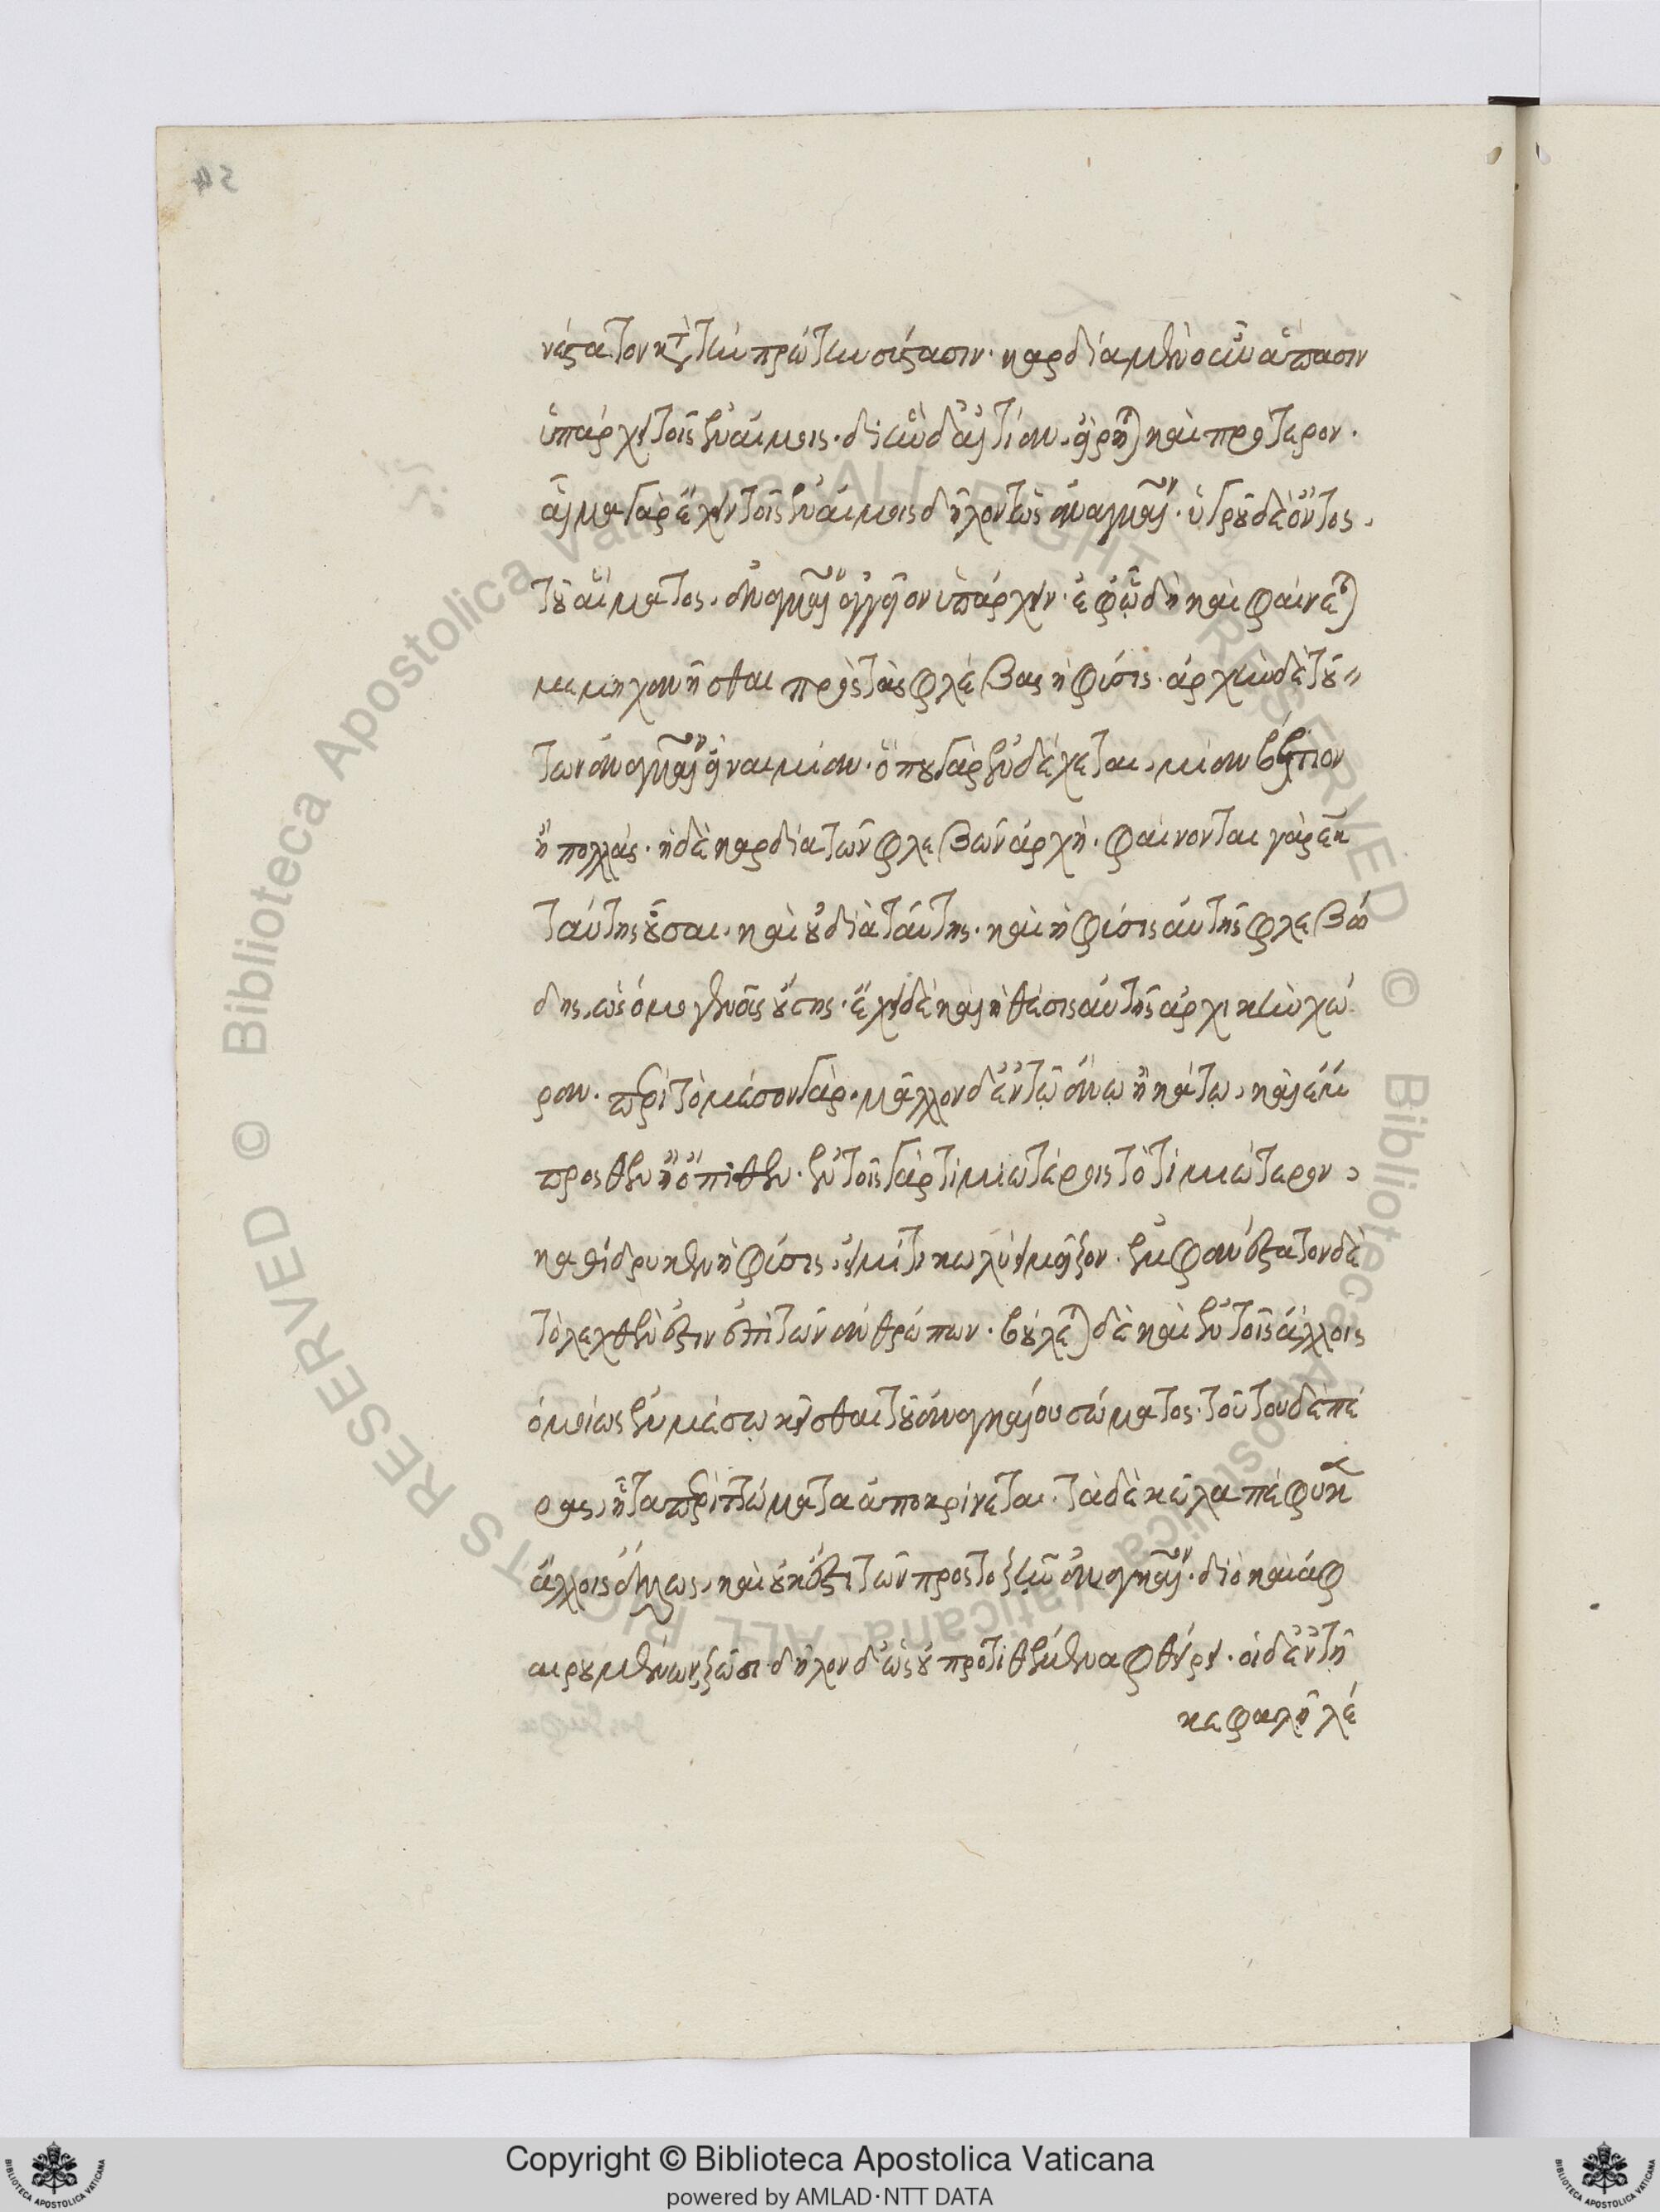 νέστατον κατὰ τὴν πρώτην σύστασιν. καρδία μὲν οὖν ἅπασιν
ὑπάρχει τοῖς ἐναίμοις. δι' ἣν δ' αἰτίαν, εἴρηται καὶ πρότερον.
αἷμα γὰρ ἔχειν τοῖς ἐναίμοις δῆλον ὡς ἀναγκαῖον. ὑγροῦ δὲ ὄντος
τοῦ αἵματος, ἀναγκαῖον ἀγγεῖον ὑπάρχειν. ἐφ' ᾧ δὴ καὶ φαίνεται
μεμηχανῆσθαι πρὸς τὰς φλέβας ἡ φύσις. ἀρχὴν δὲ τού-
των ἀναγκαῖον εἶναι μίαν. ὅπου γὰρ ἐνδέχεται, μίαν βέλτιον
ἢ πολλάς. ἡ δὲ καρδία τῶν φλεβῶν ἀρχή. φαίνονται γὰρ ἐκ
ταύτης οὖσαι, καὶ οὐ διὰ ταύτης. καὶ ἡ φύσις αὐτῆς φλεβώ
δης, ὡς ὁμογενοῦς οὔσης. ἔχει δὲ καὶ ἡ θέσις αὐτῆς ἀρχικὴν χώ
ραν. περὶ τὸ μέσον γὰρ. μᾶλλον δ' ἐν τῷ ἄνω ἢ κάτω, καὶ ἔμ
προσθεν ἢ ὄπιθεν. ἐν τοῖς γὰρ τιμιωτέροις τὸ τιμιώτερον,
καθίδρυκεν ἡ φύσις, εἰ μή τι κωλύει μεῖζον. ἐμφανέστατον δὲ
τὸ λεχθέν ἐστιν ἐπὶ τῶν ἀνθρώπων. βούλεται δὲ καὶ ἐν τοῖς ἄλλοις
ὁμοίως ἐν μέσῳ κεῖσθαι τοῦ ἀναγκαίου σώματος. τούτου δὲ πέ
ρας, ᾗ τὰ περιττώματα ἀποκρίνεται. τὰ δὲ κῶλα πέφυκεν
ἄλλοις ἄλλως, καὶ οὐκ ἔστι τῶν πρὸς τὸ ζῆν ἀναγκαίων. διὸ καὶ ἀφ
αιρουμένων ζῶσι. δῆλον δ' ὡς οὐ προστιθέμενα φθείρει. οἱ δ' ἐν τῇ
κεφαλῇ λέ